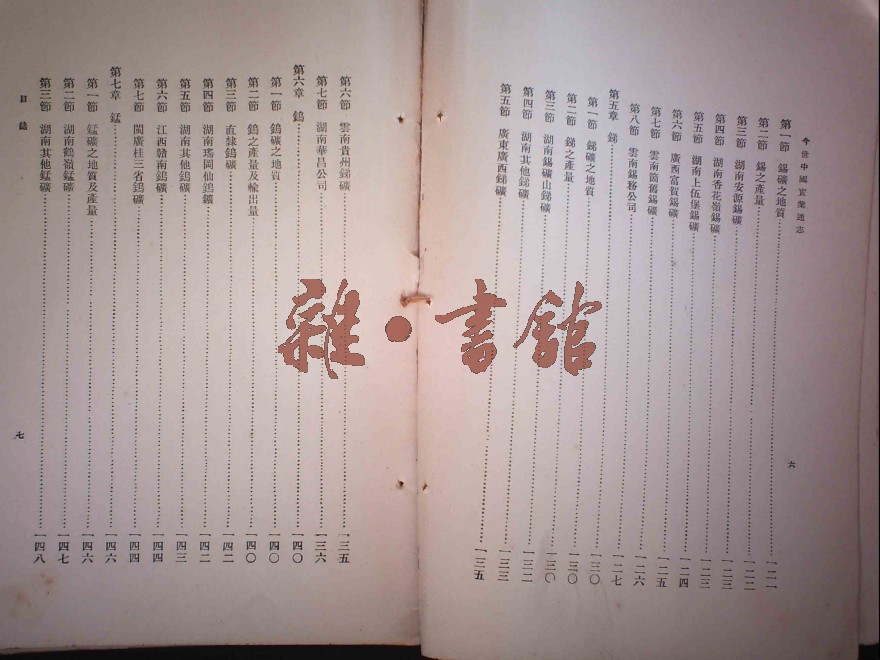 今世中國實業通志
六
第一節 錫礦之地質……一二一
第二節 錫之產量……一二二
第三節 湖南安源錫礦……一二三
第四節 湖南香花嶺錫礦……一二三
第五節 湖南上伍堡錫礦……一二四
第六節 廣西富賀錫礦……一二五
第七節 雲南箇舊錫礦……一二六
第八節 雲南錫務公司……一二七
第五章 銻……一三〇
第一節 銻礦之地質……一三〇
第二節 銻之產量……一三〇
第三節 湖南錫礦山銻礦……一三二
第四節 湖南其他銻礦……一三三
第五節 廣東廣西銻礦……一三五
第六節 雲南貴州銻礦……一三五
第七節 湖南華昌公司……一三六
第六章 鎢……一四〇
第一節 鎢礦之地質……一四〇
第二節 鎢之產量及輸出量……一四〇
第三節 直隸鎢礦……一四二
第四節 湖南瑤岡仙鎢鑛……一四二
第五節 湖南其他鎢礦……一四三
第六節 江西贛南鎢礦……一四四
第七節 閩廣桂三省鎢礦……一四四
第七章 錳……一四六
第一節 錳礦之地質及產量……一四六
第二節 湖南鶴嶺錳礦……一四七
第三節 湖南其他錳礦……一四八
目錄
七
雜·書館